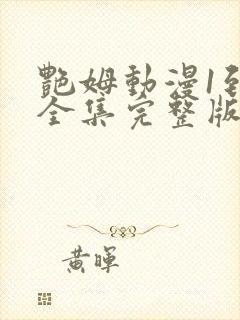 艷姆動漫1到
全集完整版
黃暉